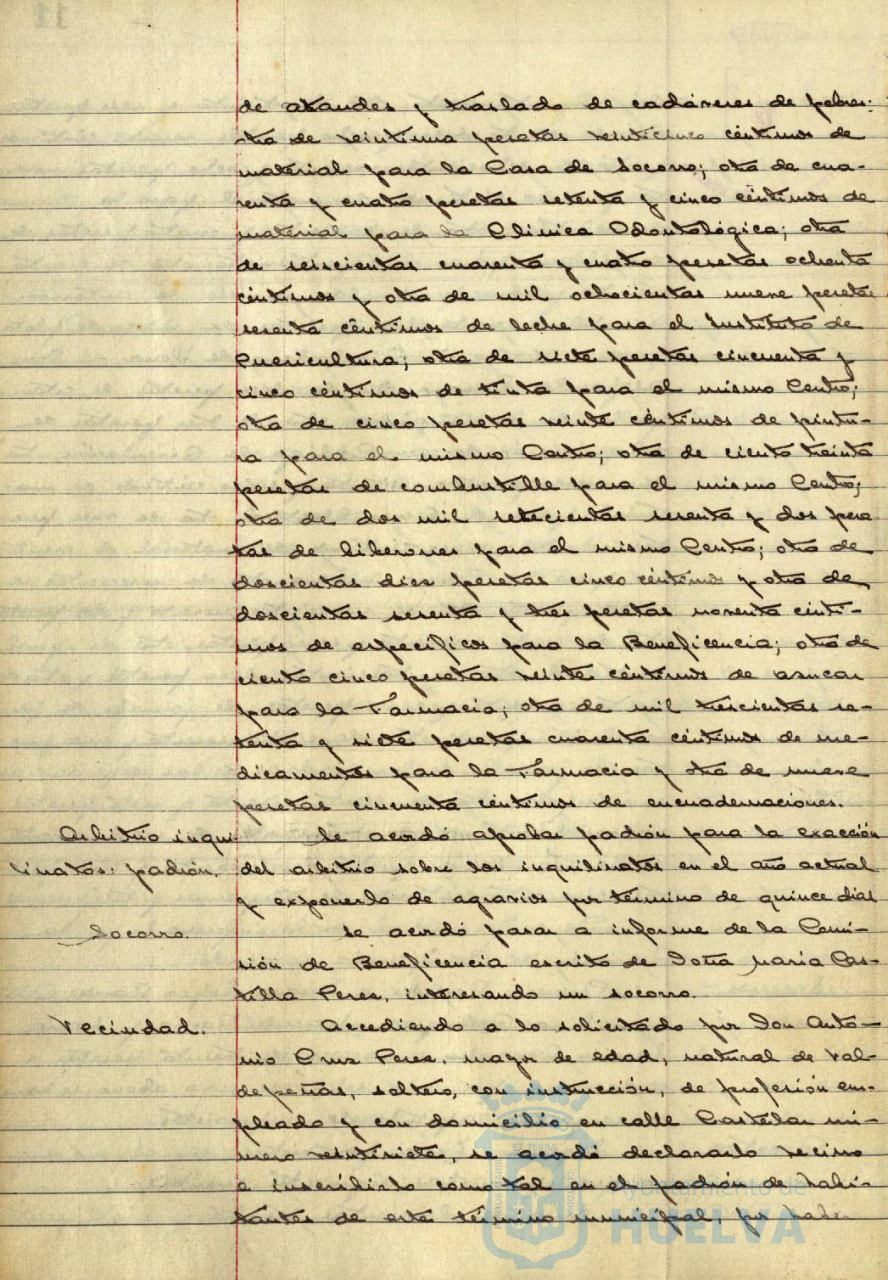 de ataudes y traslado de cadáveres de pobres:
otra de veintiuna pesetas veinticinco céntimos de
material para la Casa de Socorro; otra de cua-
renta y cuatro pesetas setenta y cinco céntimos de
material para la Clinica Odontológica; otra
de seiscientas cuarenta y cuatro pesetas ochenta
céntimos y otra de mil ochocientas nueve pesetas
sesenta céntimos de leche para el Instituto de
Puericultura; otra de siete pesetas cincuenta y
cinco céntimos de tinta para el mismo Centro;
otra de cinco pesetas veinte céntimos de pintu-
ra para el mismo Centro; otra de ciento treinta
pesetas de combustible para el mismo Centro;
otra de dos mil setecientas sesenta y dos pese
tas de biberones para el mismo Centro; otra de
doscientas diez pesetas cinco céntimos y otra de
doscientas sesenta y tres pesetas noventa cénti-
mos de específicos para la Beneficencia; otra de
ciento cinco pesetas veinte céntimos de azucar
para la Farmacia; otra de mil trescientas se-
tenta y siete pesetas cuarenta céntimos de me-
dicamentos para la Farmacia y otra de nueve
pesetas cincuenta céntimos de encuadernaciones.
Arbitrio inqui-
linatos: padrón.
Se acordó aprobar padrón para la exacción
del arbitrio sobre los inquilinatos en el año actual
y exponerlo de agravios por término de quince dias
Socorro.
Se acordó pasar a informe de la Comi-
sión de Beneficencia escrito de Doña María Cas-
tilla Perez, interesando un socorro.
Vecindad.
Accediendo a lo solicitado por Don Anto-
nio Cruz Perez, mayor de edad, natural de Val-
depeñas, soltero, con instrucción, de profesión em-
pleado y con domicilio en calle Castelar nú-
mero veintisiete, se acordó declararlo vecino
e inscribirlo como tal en el padrón de habi-
tantes de este término municipal, por haber
Ayuntamiento de
HUELVA